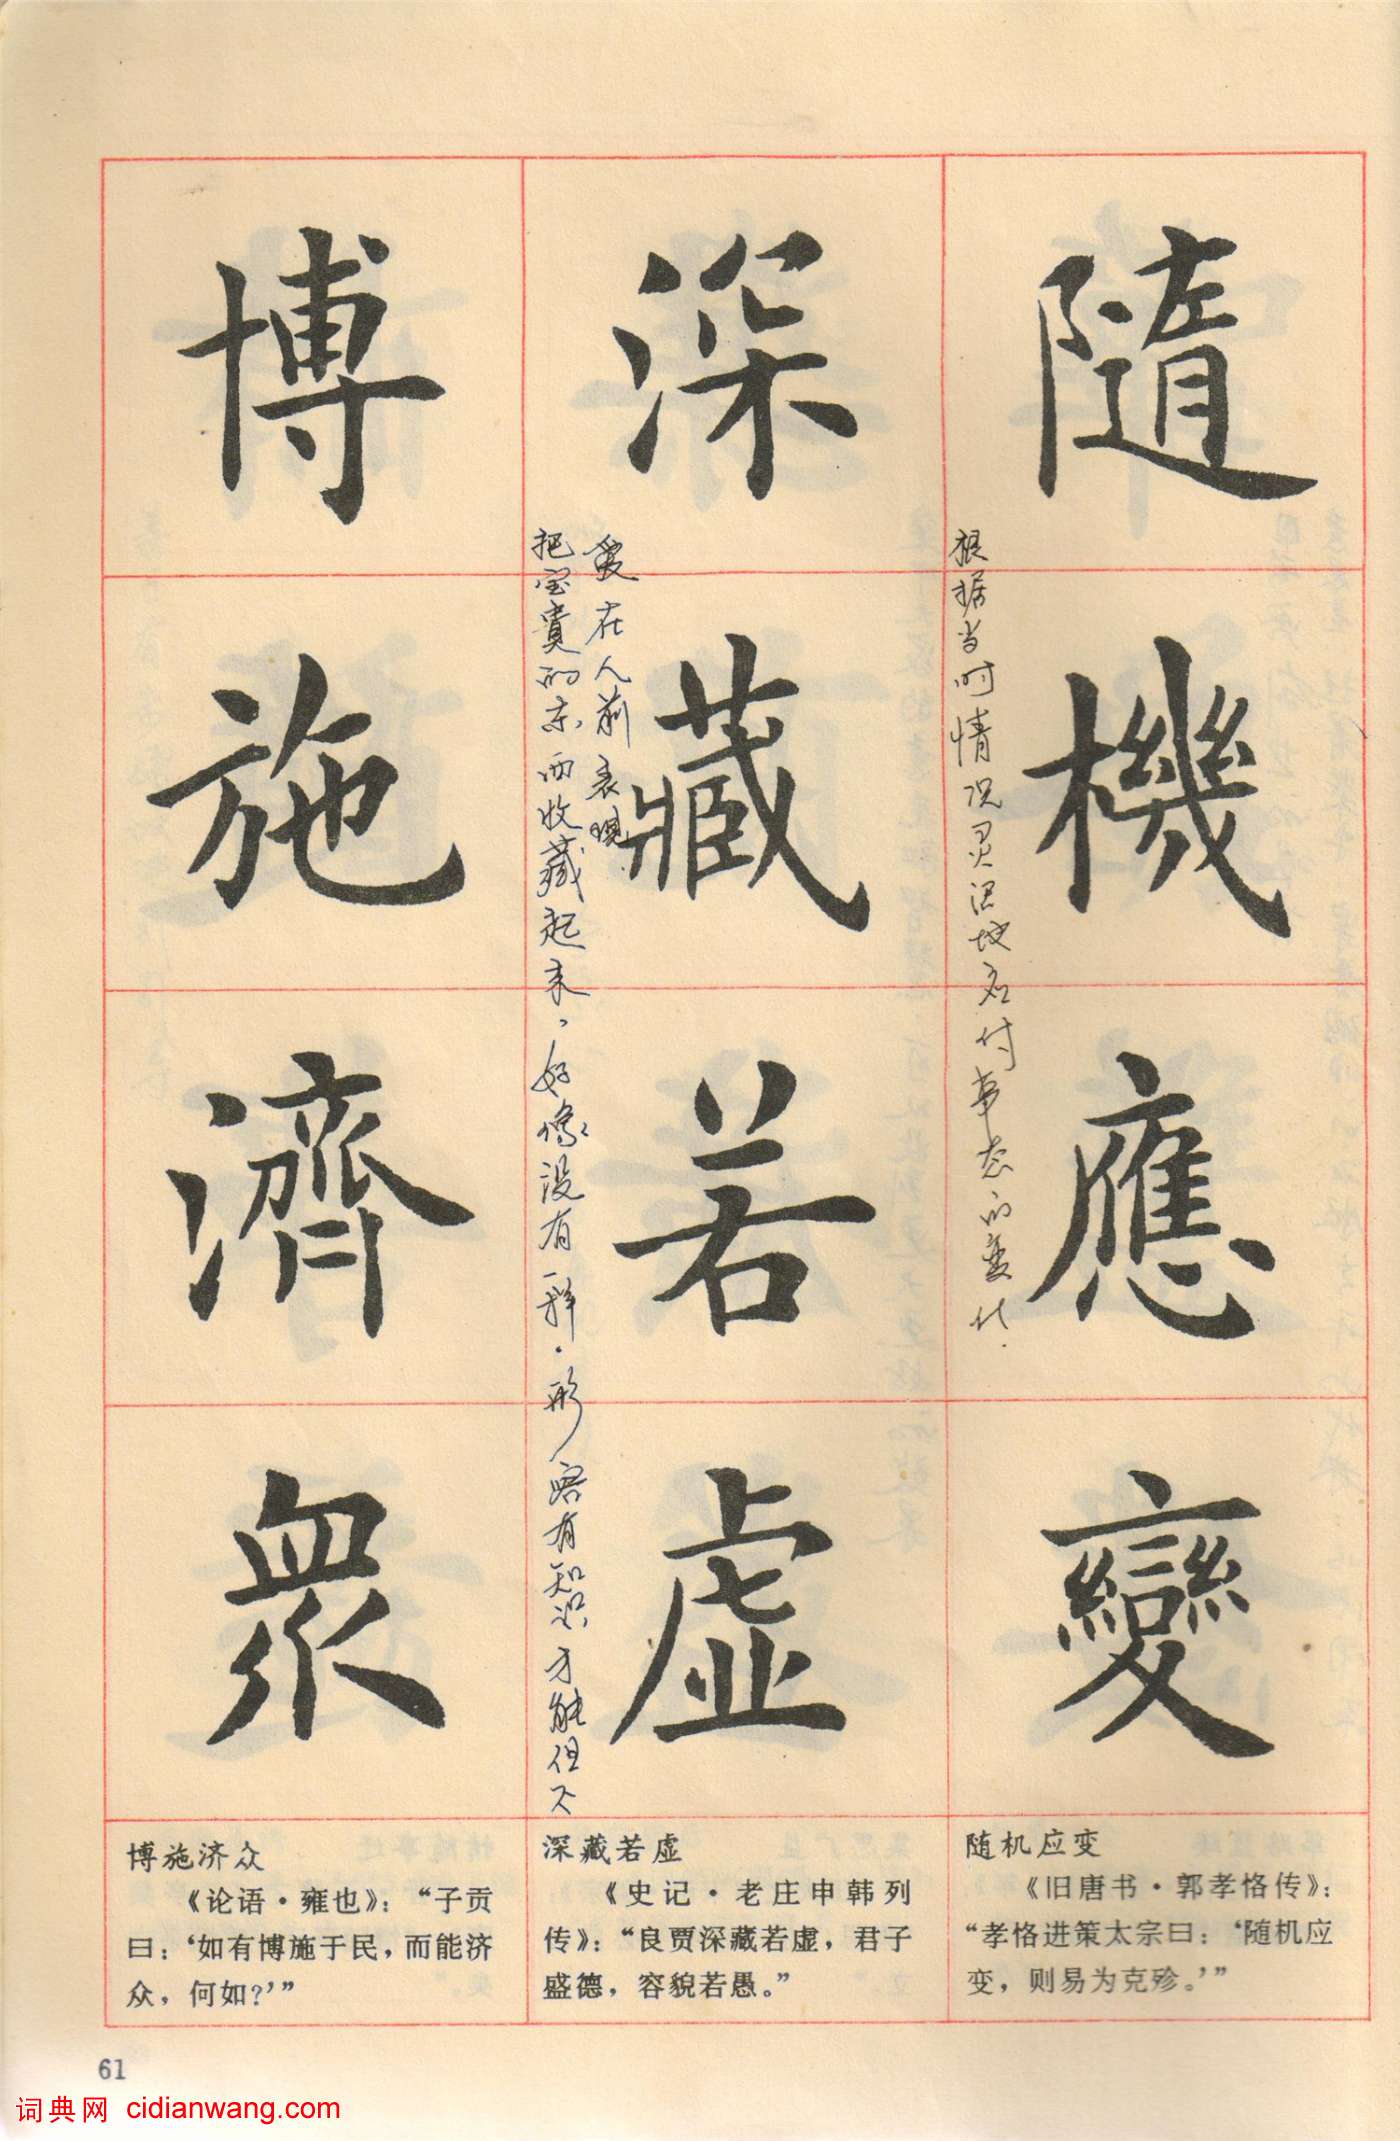 隨機應變
根据当时情况灵活地应付事态的变化.
深藏若虛
爱在人前表现
把宝貴的东西收藏起来，好像没有一样.形容有知识才能但不
博施濟衆
随机应变
《旧唐书·郭孝恪传》：
“孝恪进策太宗曰：‘随机应
变，则易为克殄。’”
深藏若虚
《史记·老庄申韩列
传》：“良贾深藏若虚，君子
盛德，容貌若愚。”
博施济众
《论语·雍也》：“子贡
曰：‘如有博施于民，而能济
众，何如？’”
61
词典网 cidianwang.com